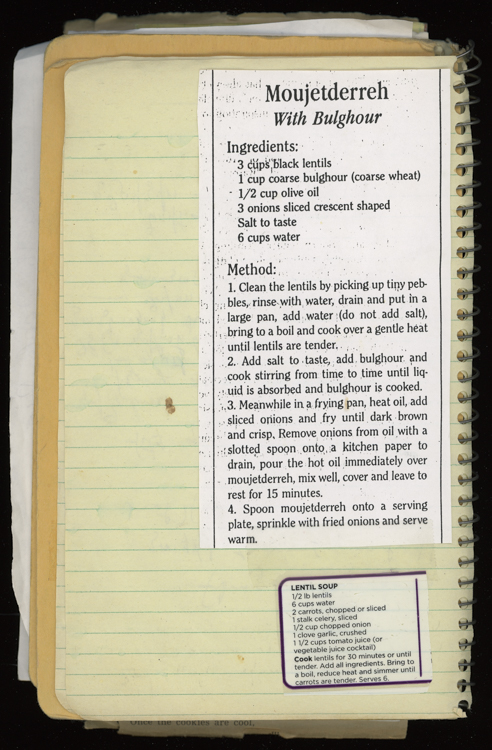 Moujetderreh
With Bulghour
Ingredients:
3 cups black lentils
1 cup coarse bulghour (coarse wheat)
1/2 cup olive oil
3 onions sliced crescent shaped
Salt to taste
6 cups water
Method:
1. Clean the lentils by picking up tiny peb-
bles, rinse with water, drain and put in a
large pan, add water (do not add salt),
bring to a boil and cook over a gentle heat
until lentils are tender.
2. Add salt to taste, add bulghour and
cook stirring from time to time until liq-
uid is absorbed and bulghour is cooked.
3. Meanwhile in a frying pan, heat oil, add
sliced onions and fry until dark brown
and crisp. Remove onions from oil with a
slotted spoon onto a kitchen paper to
drain, pour the hot oil immediately over
moujetderreh, mix well, cover and leave to
rest for 15 minutes.
4. Spoon moujetderreh onto a serving
plate, sprinkle with fried onions and serve
warm.
LENTIL SOUP
1/2 lb lentils
6 cups water
2 carrots, chopped or sliced
1 stalk celery, sliced
1/2 cup chopped onion
1 clove garlic, crushed
1 1/2 cups tomato juice (or
vegetable juice cocktail)
Cook lentils for 30 minutes or until
tender. Add all ingredients. Bring to
a boil, reduce heat and simmer until
carrots are tender. Serves 6.
Once the cookies are cool,